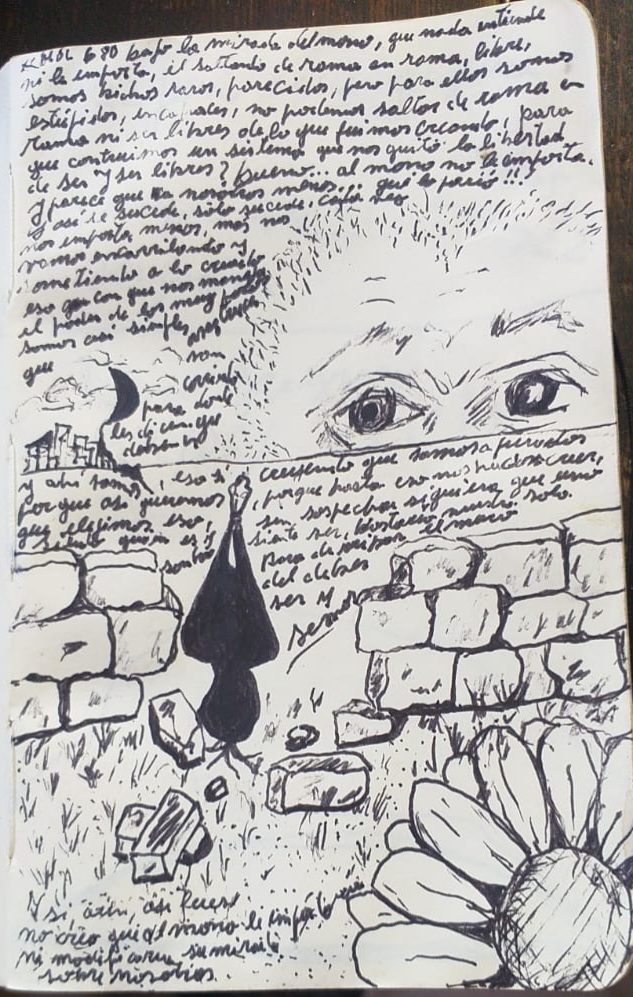 680 bajo la mirada del mono, que nada entiende
ni le importa, el saltando de rama en rama, libre,
somos bichos raros, parecidos, pero para ellos somos
estupidos, incapaces, no podemos saltar de rama en
rama ni ser libres de lo que fuimos creando, para
que construimos un sistema que nos quitó la libertad
de ser y ser libres? bueno... al mono no le importa.
y parece que a nosotros menos... que lo parió!!!
y así se sucede, solo sucede, cada vez
nos importa menos, mas nos
vamos encarrilando y
sometiendo a lo creado
eso que con que nos maneja
el poder de los muy pocos
somos casi simples
que van
corriendo
para donde
les dicen que
deben ir
y ahi vamos, eso si, creyendo que somos
porque asi queremos, porque hasta eso nos hacen creer,
que elegimos eso, sin sospechar siquiera que uno
siente ser, nuestro solo.
sombra
el muro
del deber
ser y
seremos
y si, aún, así fuera
no creo que al mono le importe
ni modificaria su mirada
sobre nosotros.